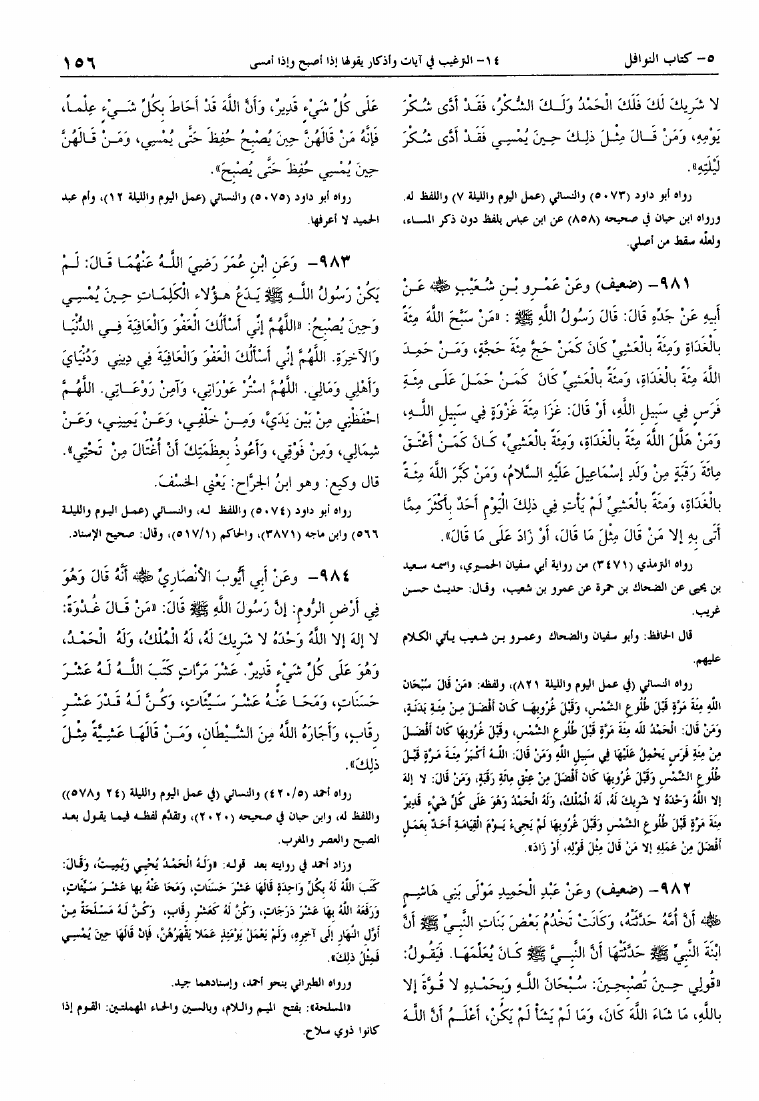 ٥- كتاب النوافل
١٤- الترغيب في آيات وأذكار يقولها إذا أصبح وإذا أمسى
١٥٦
لا شَرِيكَ لَكَ فَلَكَ الْحَمْدُ وَلَكَ الشُّكْرُ، فَقَدْ أَدَّى شُكْرَ
يَوْمِهِ، وَمَنْ قَالَ مِثْلَ ذلِكَ حِينَ يُمْسِي فَقَدْ أَدَّى شُكْرَ
لَيْلَتِهِ».
رواه أبو داود (٥٠٧٣) والنسائي (عمل اليوم والليلة ٧) واللفظ له.
ورواه ابن حبان في صحيحه (٨٥٨) عن ابن عباس بلفظ دون ذكر المساء،
ولعلّه سقط من أصلي.
٩٨١- (ضعيف) وعَنْ عَمْرِو بْنِ شُعَيْبٍ ﷺ عَنْ
أَبِيهِ عَنْ جَدِّهِ قَالَ: قَالَ رَسُولُ اللَّهِ ﷺ : «مَنْ سَبَّحَ اللَّهَ مِئَةً
بِالْغَدَاةِ وَمِئَةً بِالْعَشِيِّ كَانَ كَمَنْ حَجَّ مِئَةَ حَجَّةٍ، وَمَنْ حَمِدَ
اللَّهَ مِئَةً بِالْغَدَاةِ، وَمِئَةً بِالْعَشِيِّ كَانَ كَمَنْ حَمَلَ عَلَى مِئَةِ
فَرَسٍ فِي سَبِيلِ اللَّهِ، أَوْ قَالَ: غَزَا مِئَةَ غَزْوَةٍ فِي سَبِيلِ اللَّهِ،
وَمَنْ هَلَّلَ اللَّهَ مِئَةً بِالْغَدَاةِ، وَمِئَةً بِالْعَشِيِّ، كَانَ كَمَنْ أَعْتَقَ
مِائَةَ رَقَبَةٍ مِنْ وَلَدِ إِسْمَاعِيلَ عَلَيْهِ السَّلَامُ، وَمَنْ كَبَّرَ اللَّهَ مِئَةً
بِالْغَدَاةِ، وَمِئَةً بِالْعَشِيِّ لَمْ يَأْتِ فِي ذلِكَ الْيَوْمِ أَحَدٌ بِأَكْثَرَ مِمَّا
أَتَى بِهِ إِلا مَنْ قَالَ مِثْلَ مَا قَالَ، أَوْ زَادَ عَلَى مَا قَالَ».
رواه الترمذي (٣٤٧١) من رواية أبي سفيان الحميري، واسمه سعيد
بن يحيى عن الضحاك بن حمرة عن عمرو بن شعيب، وقال: حديث حسن
غريب.
قال الحافظ: وأبو سفيان والضحاك وعمرو بن شعيب يأتي الكلام
عليهم.
رواه النسائي (في عمل اليوم والليلة ٨٢١)، ولفظه: «مَنْ قَالَ سُبْحَانَ
اللَّهِ مِئَةَ مَرَّةٍ قَبْلَ طُلُوعِ الشَّمْسِ، وَقَبْلَ غُرُوبِهَا كَانَ أَفْضَلَ مِنْ مِئَةِ بَدَنَةٍ،
وَمَنْ قَالَ: الْحَمْدُ لله مِئَةَ مَرَّةٍ قَبْلَ طُلُوعِ الشَّمْسِ، وَقَبْلَ غُرُوبِهَا كَانَ أَفْضَلَ
مِنْ مِئَةِ فَرَسٍ يَحْمِلُ عَلَيْهَا فِي سَبِيلِ اللَّهِ وَمَنْ قَالَ: اللَّهُ أَكْبَرُ مِئَةَ مَرَّةٍ قَبْلَ
طُلُوعِ الشَّمْسِ وَقَبْلَ غُرُوبِهَا كَانَ أَفْضَلَ مِنْ عِتْقِ مِائَةِ رَقَبَةٍ، وَمَنْ قَالَ: لا إِلهَ
إِلا اللَّهُ وَحْدَهُ لا شَرِيكَ لَهُ، لَهُ الْمُلْكُ، وَلَهُ الْحَمْدُ وَهُوَ عَلَى كُلِّ شَيْءٍ قَدِيرٌ
مِئَةَ مَرَّةٍ قَبْلَ طُلُوعِ الشَّمْسِ وَقَبْلَ غُرُوبِهَا لَمْ يَجِيءْ يَوْمَ الْقِيَامَةِ أَحَدٌ بِعَمَلٍ
أَفْضَلَ مِنْ عَمَلِهِ إِلا مَنْ قَالَ مِثْلَ قَوْلِهِ، أَوْ زَادَ».
٩٨٢- (ضعيف) وعَنْ عَبْدِ الْحَمِيدِ مَوْلَى بَنِي هَاشِمٍ
ﷺ أَنَّ أُمَّهُ حَدَّثَتْهُ، وَكَانَتْ تَخْدُمُ بَعْضَ بَنَاتِ النَّبِيِّ ﷺ أَنَّ
ابْنَةَ النَّبِيِّ ﷺ حَدَّثَتْهَا أَنَّ النَّبِيَّ ﷺ كَانَ يُعَلِّمُهَا. فَيَقُولُ:
«قُولِي حِينَ تُصْبِحِينَ: سُبْحَانَ اللَّهِ وَبِحَمْدِهِ لا قُوَّةَ إِلا
بِاللَّهِ، مَا شَاءَ اللَّهُ كَانَ، وَمَا لَمْ يَشَأْ لَمْ يَكُنْ، أَعْلَمُ أَنَّ اللَّهَ
عَلَى كُلِّ شَيْءٍ قَدِيرٌ، وَأَنَّ اللَّهَ قَدْ أَحَاطَ بِكُلِّ شَيْءٍ عِلْماً،
فَإِنَّهُ مَنْ قَالَهُنَّ حِينَ يُصْبِحُ حُفِظَ حَتَّى يُمْسِي، وَمَنْ قَالَهُنَّ
حِينَ يُمْسِي حُفِظَ حَتَّى يُصْبِحَ».
رواه أبو داود (٥٠٧٥) والنسائي (عمل اليوم والليلة ١٢)، وأم عبد
الحميد لا أعرفها.
٩٨٣- وَعَنِ ابْنِ عُمَرَ رَضِيَ اللَّهُ عَنْهُمَا قَالَ: لَمْ
يَكُنْ رَسُولُ اللَّهِ ﷺ يَدَعُ هؤُلاءِ الْكَلِمَاتِ حِينَ يُمْسِي
وَحِينَ يُصْبِحُ: «اللَّهُمَّ إِنِّي أَسْأَلُكَ الْعَفْوَ وَالْعَافِيَةَ فِي الدُّنْيَا
وَالآخِرَةِ. اللَّهُمَّ إِنِّي أَسْأَلُكَ الْعَفْوَ وَالْعَافِيَةَ فِي دِينِي وَدُنْيَايَ
وَأَهْلِي وَمَالِي. اللَّهُمَّ اسْتُرْ عَوْرَاتِي، وَآمِنْ رَوْعَاتِي. اللَّهُمَّ
احْفَظْنِي مِنْ بَيْنِ يَدَيَّ، وَمِنْ خَلْفِي، وَعَنْ يَمِينِي، وَعَنْ
شِمَالِي، وَمِنْ فَوْقِي، وَأَعُوذُ بِعَظَمَتِكَ أَنْ أُغْتَالَ مِنْ تَحْتِي».
قال وكيع: وهو ابنُ الجرَّاح: يَعْنِي الخَسْفَ.
رواه أبو داود (٥٠٧٤) واللفظ له، والنسائي (عمل اليوم والليلة
٥٦٦) وابن ماجه (٣٨٧١)، والحاكم (٥١٧/١)، وقال: صحيح الإسناد.
٩٨٤- وعَنْ أَبِي أَيُّوبَ الأَنْصَارِيِّ ﷺ أَنَّهُ قَالَ وَهُوَ
فِي أَرْضِ الرُّومِ: إِنَّ رَسُولَ اللَّهِ ﷺ قَالَ: «مَنْ قَالَ غُدْوَةً:
لا إِلهَ إِلا اللَّهُ وَحْدَهُ لا شَرِيكَ لَهُ، لَهُ الْمُلْكُ، وَلَهُ الْحَمْدُ،
وَهُوَ عَلَى كُلِّ شَيْءٍ قَدِيرٌ. عَشْرَ مَرَّاتٍ كَتَبَ اللَّهُ لَهُ عَشْرَ
حَسَنَاتٍ، وَمَحَا عَنْهُ عَشْرَ سَيِّئَاتٍ، وَكُنَّ لَهُ قَدْرَ عَشْرِ
رِقَابٍ، وَأَجَارَهُ اللَّهُ مِنَ الشَّيْطَانِ، وَمَنْ قَالَهَا عَشِيَّةً مِثْلَ
ذلِكَ».
رواه أحمد (٤٢٠/٥) والنسائي (في عمل اليوم والليلة (٢٤ و٥٧٨))
واللفظ له، وابن حبان في صحيحه (٢٠٢٠)، وتقدَّم لفظه فيما يقول بعد
الصبح والعصر والمغرب.
وزاد أحمد في روايته بعد قوله: «وَلَهُ الْحَمْدُ يُحْيِي وَيُمِيتُ، وَقَالَ:
كَتَبَ اللَّهُ لَهُ بِكُلِّ وَاحِدَةٍ قَالَهَا عَشْرَ حَسَنَاتٍ، وَمَحَا عَنْهُ بِهَا عَشْرَ سَيِّئَاتٍ،
وَرَفَعَهُ اللَّهُ بِهَا عَشْرَ دَرَجَاتٍ، وَكُنَّ لَهُ كَعَشْرِ رِقَابٍ، وَكُنَّ لَهُ مَسْلَحَةً مِنْ
أَوَّلِ النَّهَارِ إِلَى آخِرِهِ، وَلَمْ يَعْمَلْ يَوْمَئِذٍ عَمَلاً يَقْهَرُهُنَّ، فَإِنْ قَالَهَا حِينَ يُمْسِي
فَمِثْلُ ذلِكَ».
ورواه الطبراني بنحو أحمد، وإسنادهما جيد.
«المسلحة»: بفتح الميم واللام، وبالسين والحاء المهملتين: القوم إذا
كانوا ذوي سلاح.